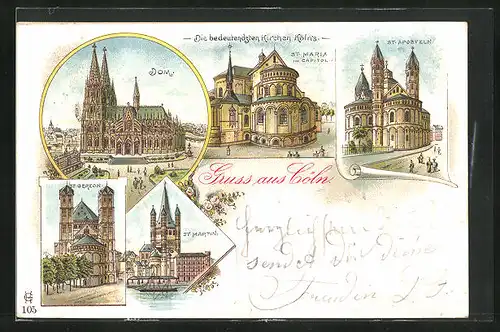 Die bedeutendsten Kirchen Köln's.
DOM.
ST. MARIA
IM CAPITOL
ST. APOSTELN.
Gruss aus Cöln.
ST. GEREON
ST. MARTIN.
Herzlichen
sendet dir deine
105